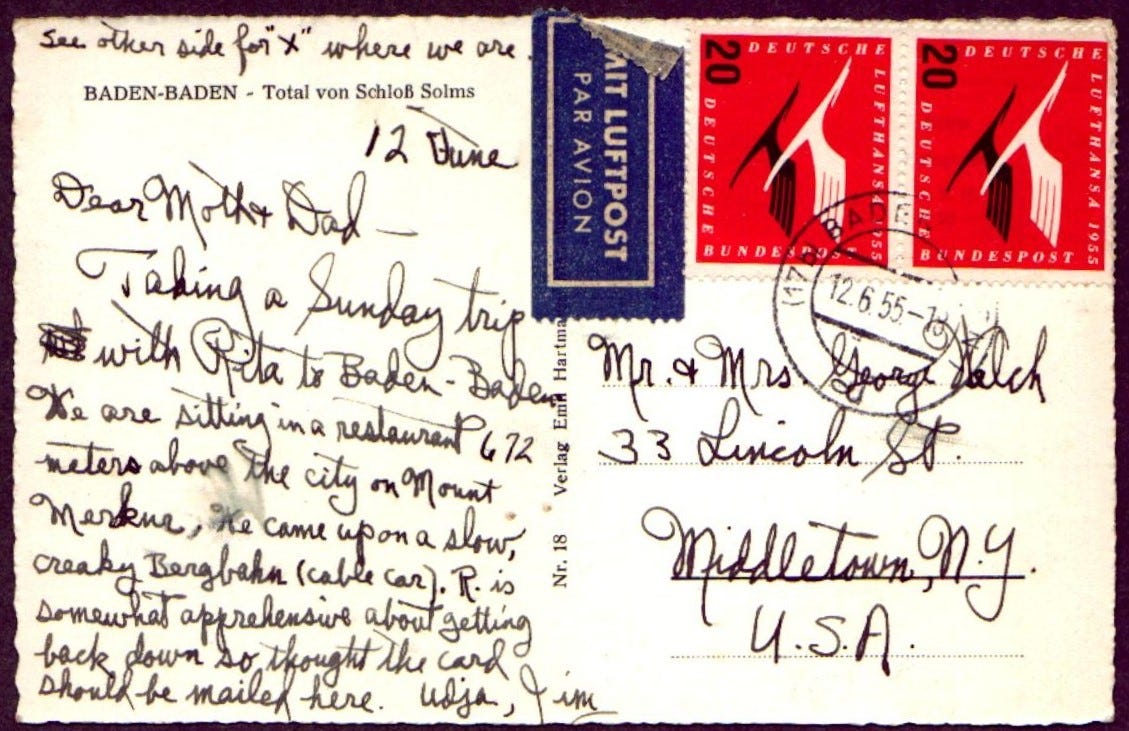 See other side for "X" where we are.
BADEN-BADEN - Total von Schloß Solms
12 June
Dear Moth & Dad —
Taking a Sunday trip
with Rita to Baden-Baden
We are sitting in a restaurant 672
meters above the city on Mount
Merkur. We came up on a slow,
creaky Bergbahn (cable car). R. is
somewhat apprehensive about getting
back down so thought the card
should be mailed here. Jim
Nr. 18 Verlag Emil Hartma
MIT LUFTPOST
PAR AVION
20
DEUTSCHE
LUFTHANSA 1955
DEUTSCHE
BUNDESPOST
20
DEUTSCHE
LUFTHANSA 1955
DEUTSCHE
BUNDESPOST
BADEN
12.6.55-18
Mr. & Mrs. George
33 Lincoln St.
Middletown, N.Y.
U.S.A.